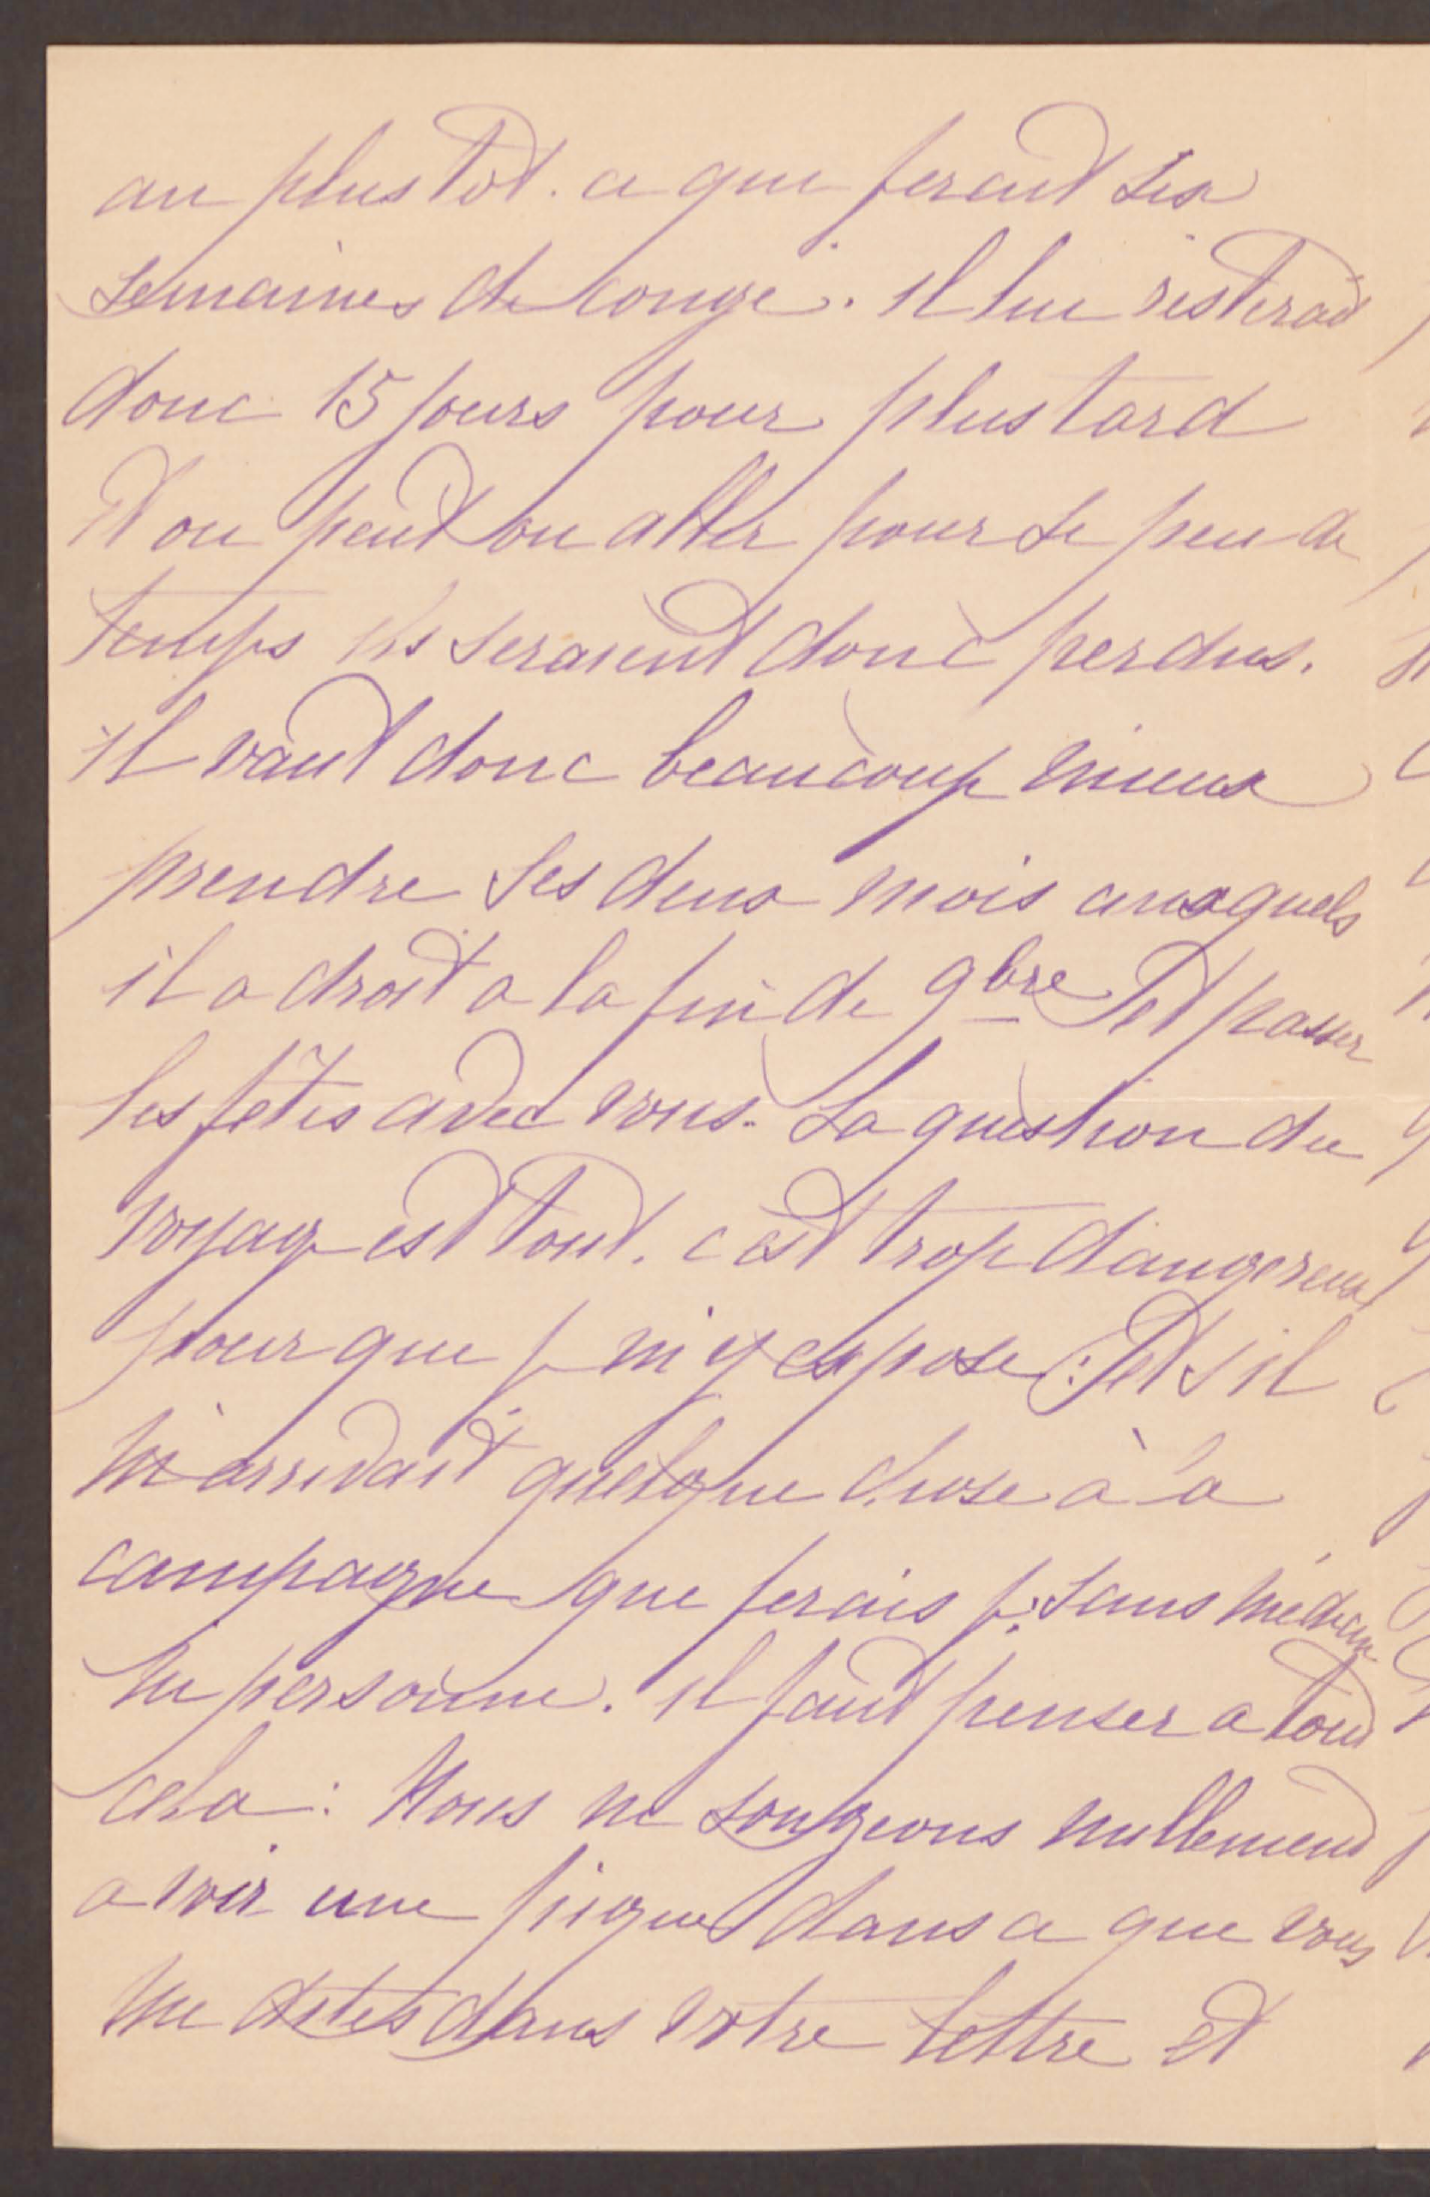 au plus tot. ce que ferait six
semaines de congé. il lui resterait
donc 15 jours pour plus tard
Et ou peut on aller pour si peu de
temps ils seraient donc perdus.
il vaut donc beaucoup mieux
prendre ses deux mois auxquels
il a droit a la fin de 9bre et passer
les fêtes avec vous. La question du
voyage est tout. c'est trop dangereux
pour que je m'y expose : Et s'il
m'arrivait quelque chose à la
campagne que ferais je sans médecin
ni personne. il faut penser a tout
cela : Nous ne songeons nullement
a voir une pique dans ce que vous
me dites dans votre lettre et